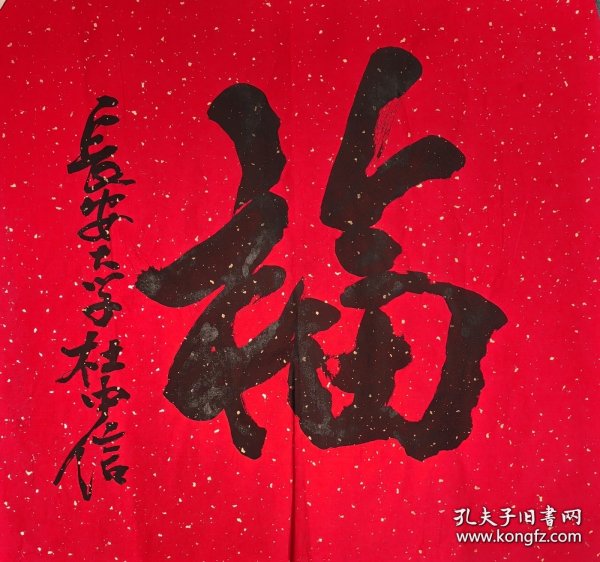 福
長安大学杜中信
孔夫子旧書网
www.kongfz.com